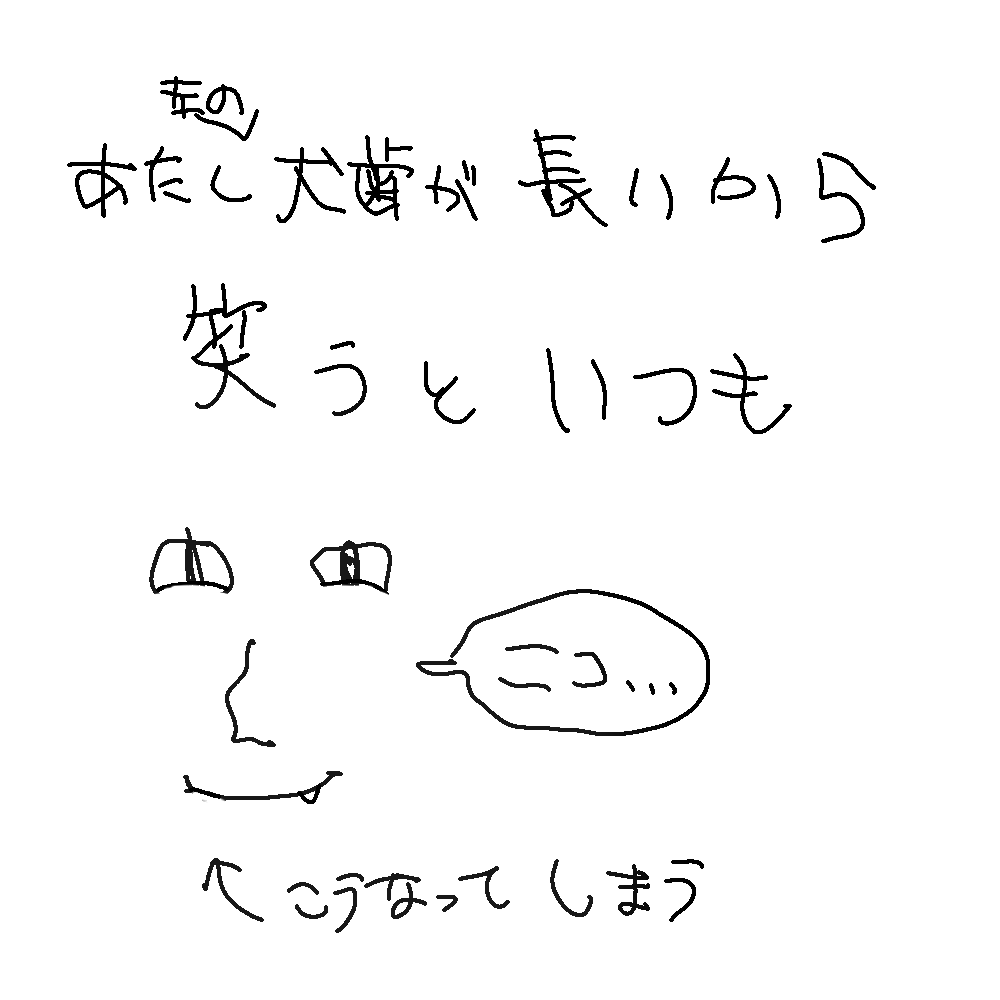 左の
あたし犬歯が長いから
笑うといつも
ニコ...
←こうなってしまう